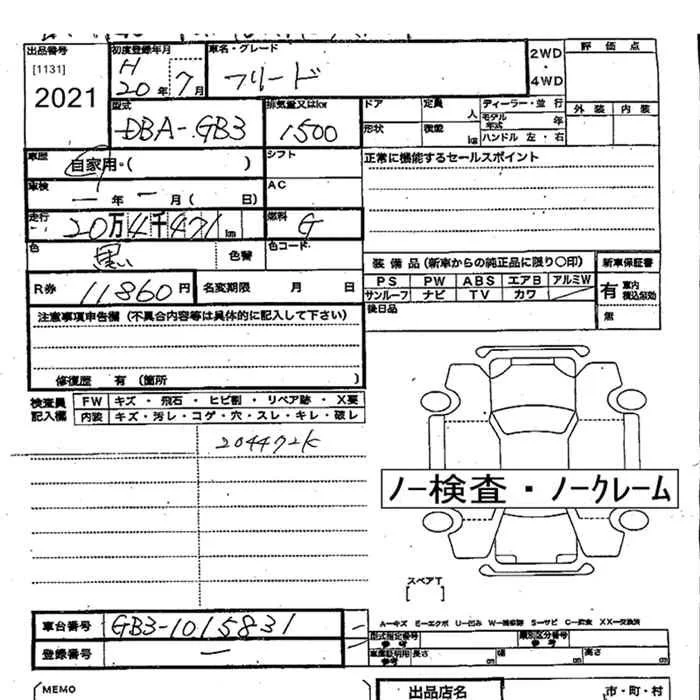 出品番号 初度登録年月 車名・グレード 2WD・4WD 評価点
[1131] H 20年 7月 フリード
2021 外装 内装
型式 排気量又はlor ドア 定員 人 ディーラー・並行
DBA-GB3 1500 形状 積載 kg モデル年式 年
ハンドル 左・右
車歴 自家用・( ) シフト 正常に機能するセールスポイント
車検 ー年ー月( 日) AC
走行 20万4千471km 燃料 G
色 黒い 色替 色コード
装備品(新車からの純正品に限り〇印) 新車保証書
R券 11860円 名変期限 月 日 PS PW ABS エアB アルミW 有 車内積込船効
サンルーフ ナビ TV カワ 無
注意事項申告欄(不具合内容等は具体的に記入して下さい) 後日品
修復歴 有(箇所 )
検査員記入欄 FW キズ・飛石・ヒビ割・リペア跡・X要
内装 キズ・汚レ・コゲ・穴・スレ・キレ・破レ
204472K
ノー検査・ノークレーム
スペアT
[ ]
A－キズ E－エクボ U－凹ミ W－補修跡 S－サビ C－腐食 XX－交換済
車台番号 GB3-1015831 型式指定番号 参考 類別区分番号 参考
登録番号 ー 車庫証明用 参考 長さ cm 幅 cm 高さ cm
MEMO 出品店名 市・町・村